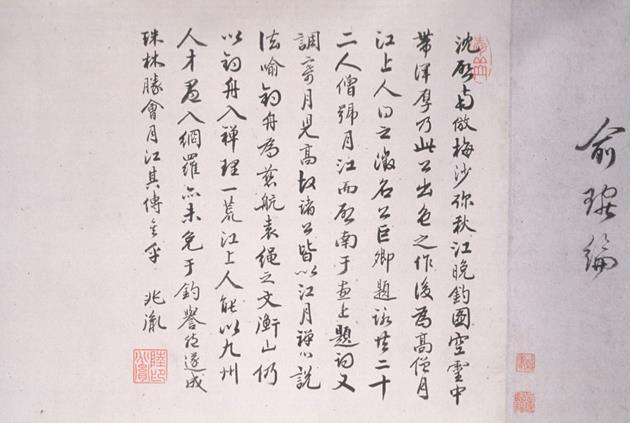 俞琬綸
沈啟南倣梅沙弥秋江晚釣圖空靈中
帶渾厚乃此公出色之作後為高僧月
江上人之徵名公巨卿題詠共二十
二人僧號月江而啟南于畫上題詞又
調寄月兒高故諸公皆以江月禪心說
法喻釣舟為慈航袁繩之文衡山仍
以釣舟入禪理一荒江上人能以九州
人才盡入網羅亦未免于釣譽遂成
珠林勝會月江其傳矣乎 兆胤